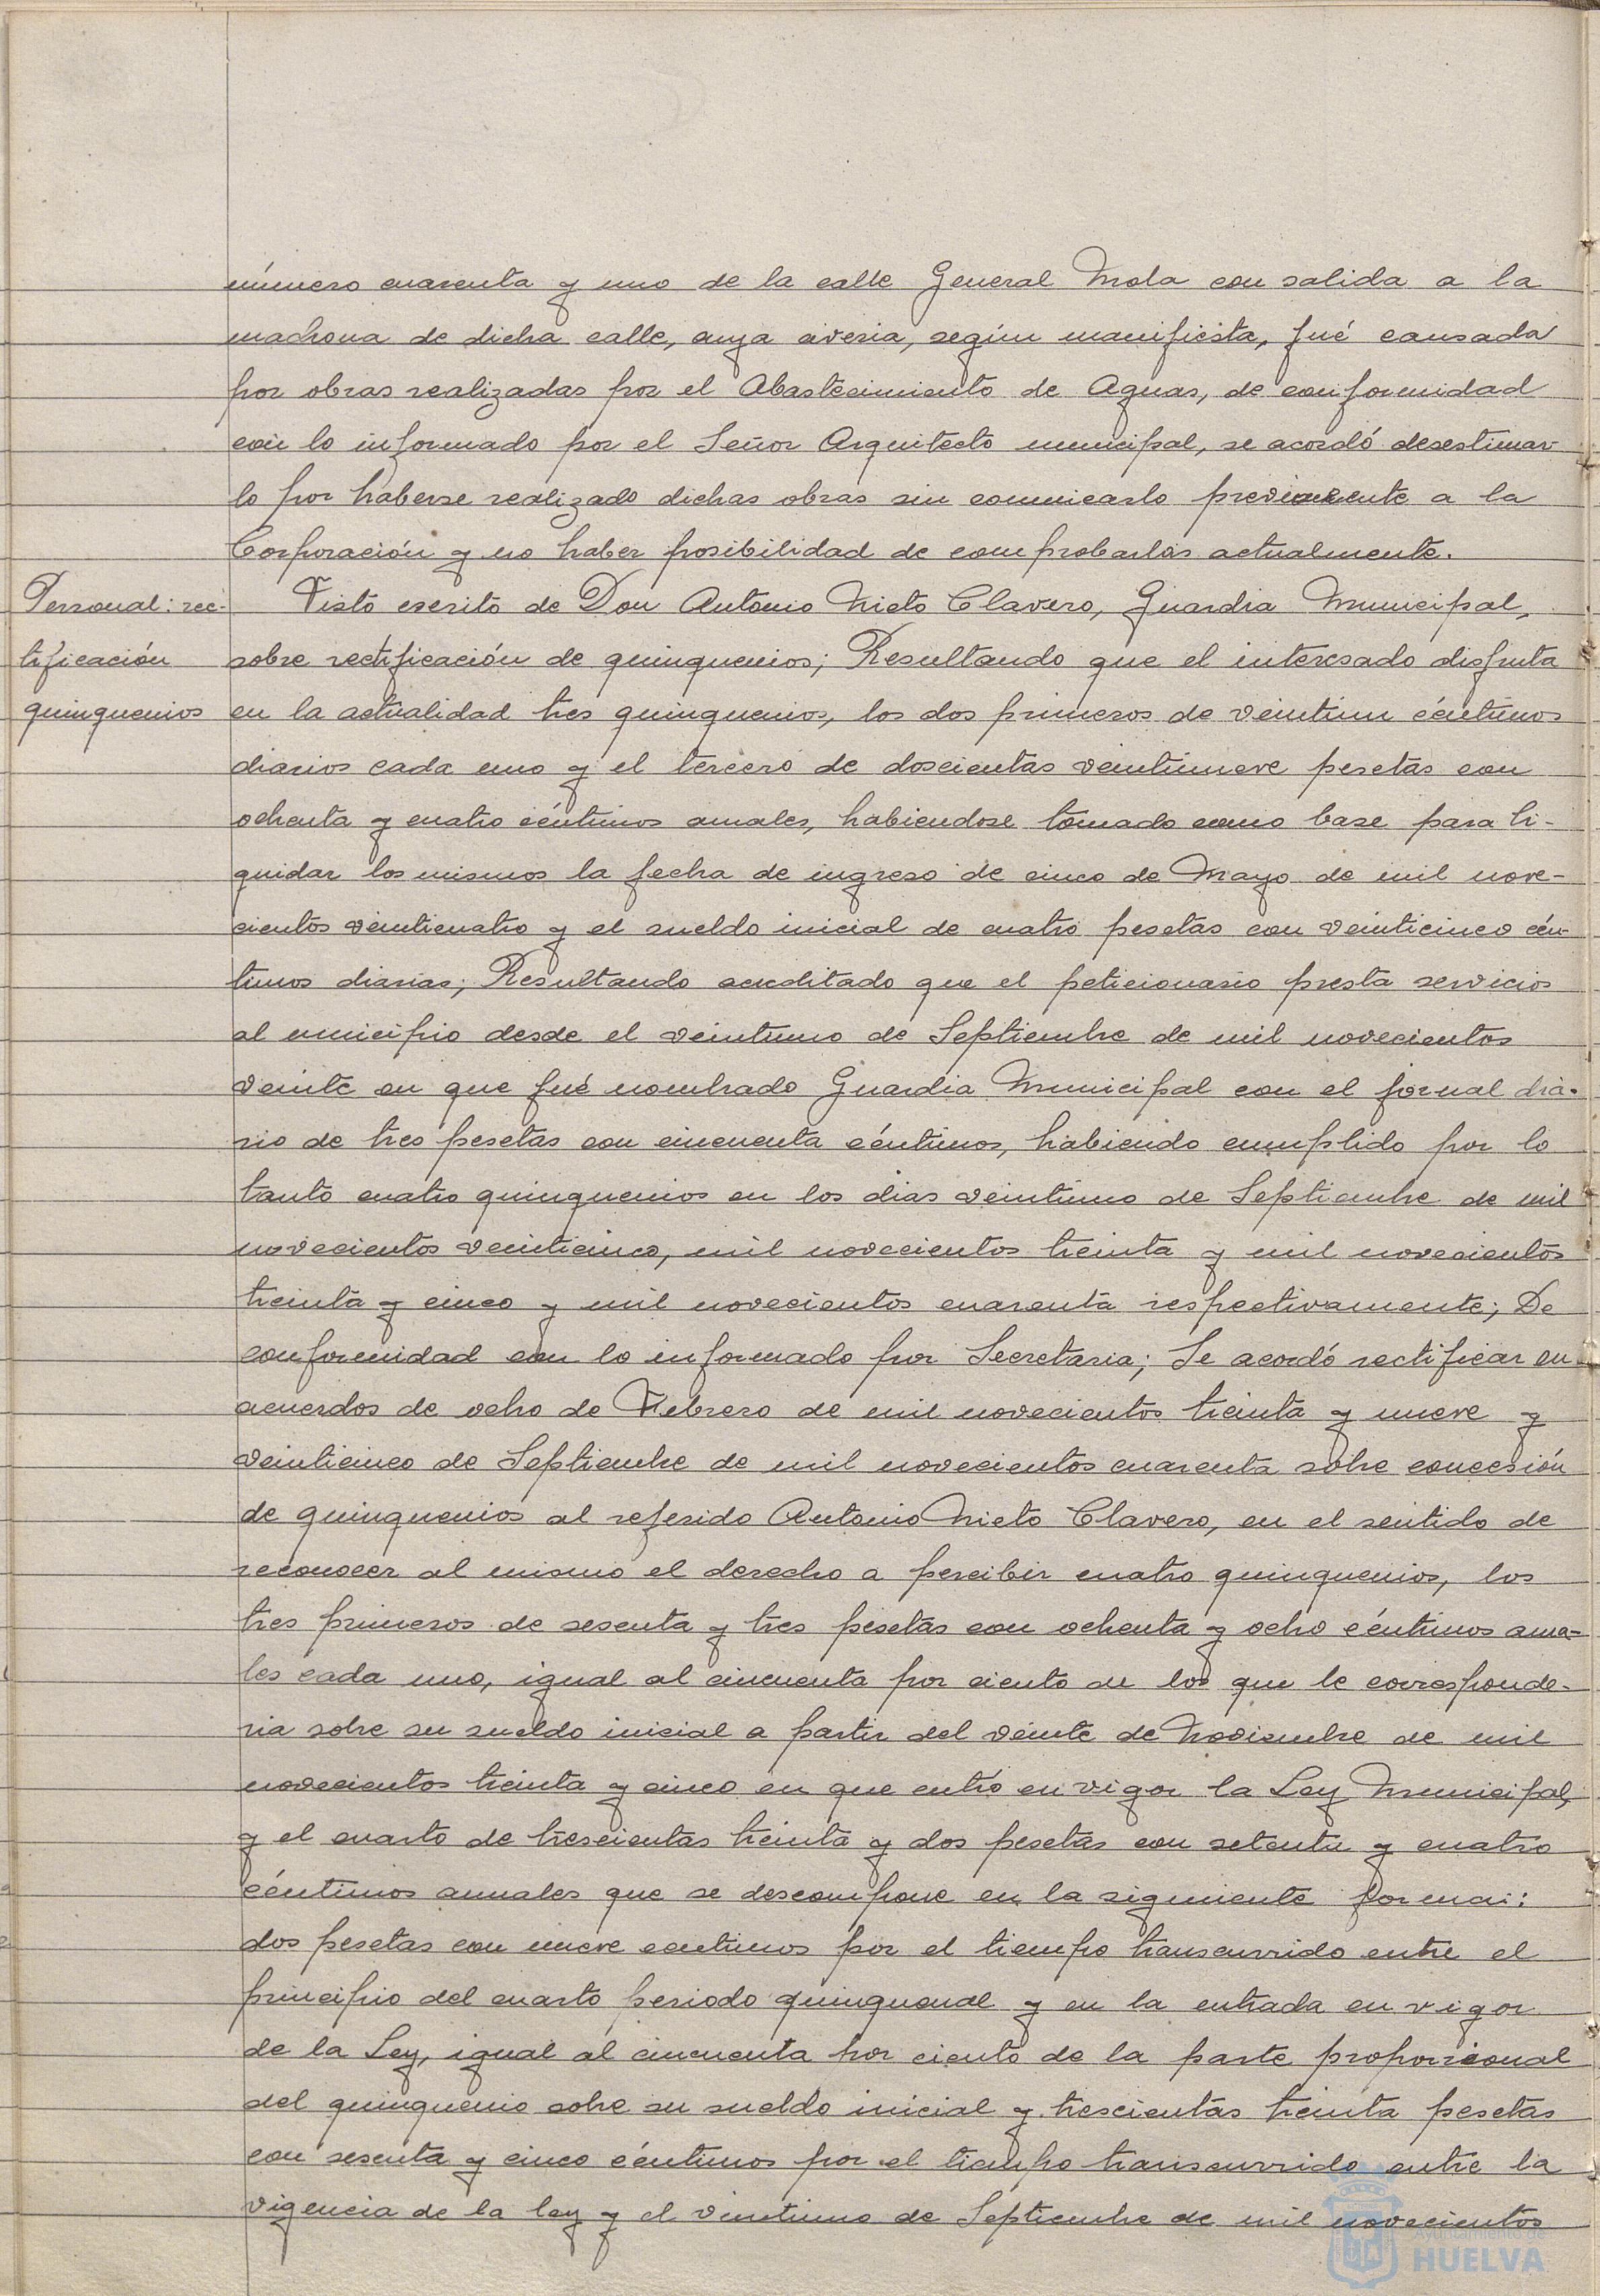 número cuarenta y uno de la calle General Mola con salida a la
madrona de dicha calle, cuya averia, según manifiesta, fué causada
por obras realizadas por el Abastecimiento de Aguas, de conformidad
con lo informado por el Señor Arquitecto municipal, se acordó desestimar
lo por haberse realizado dichas obras sin comunicarlo previamente a la
Corporación y no haber posibilidad de comprobarlas actualmente.
Personal: rec-
tificación
quinquenios
Visto escrito de Don Antonio Nieto Clavero, Guardia Municipal,
sobre rectificación de quinquenios; Resultando que el interesado disfruta
en la actualidad tres quinquenios, los dos primeros de veintiun céntimos
diarios cada uno y el tercero de doscientas veintinueve pesetas con
ochenta y cuatro céntimos anuales, habiendose tomado como base para li-
quidar los mismos la fecha de ingreso de cinco de Mayo de mil nove-
cientos veinticuatro y el sueldo inicial de cuatro pesetas con veinticinco cén-
timos diarias; Resultando acreditado que el peticionario presta servicios
al municipio desde el veintiuno de Septiembre de mil novecientos
veinte en que fué nombrado Guardia Municipal con el jornal dia-
rio de tres pesetas con cincuenta céntimos, habiendo cumplido por lo
tanto cuatro quinquenios en los dias veintiuno de Septiembre de mil
novecientos veinticinco, mil novecientos treinta y mil novecientos
treinta y cinco y mil novecientos cuarenta respectivamente; De
conformidad con lo informado por Secretaria; Se acordó rectificar su
acuerdos de ocho de Febrero de mil novecientos treinta y nueve y
veinticinco de Septiembre de mil novecientos cuarenta sobre concesión
de quinquenios al referido Antonio Nieto Clavero, en el sentido de
reconocer al mismo el derecho a percibir cuatro quinquenios, los
tres primeros de sesenta y tres pesetas con ochenta y ocho céntimos anua-
les cada uno, igual al cincuenta por ciento de los que le corresponde-
ria sobre su sueldo inicial a partir del veinte de Noviembre de mil
novecientos treinta y cinco en que entró en vigor la Ley Municipal,
y el cuarto de trescientas treinta y dos pesetas con setenta y cuatro
céntimos anuales que se descompone en la siguiente forma:
dos pesetas con nueve centimos por el tiempo transcurrido entre el
principio del cuarto periodo quinquenal y en la entrada en vigor
de la Ley, igual al cincuenta por ciento de la parte proporcional
del quinquenio sobre su sueldo inicial y trescientas treinta pesetas
con sesenta y cinco céntimos por el tiempo transcurrido entre la
vigencia de la ley y el veintiuno de Septiembre de mil novecientos
HUELVA